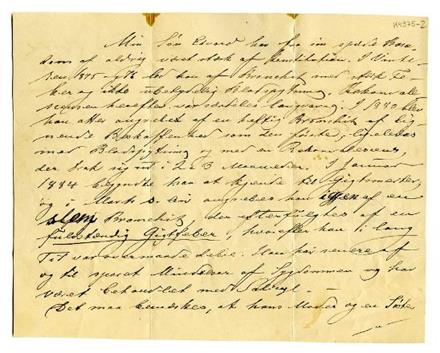 N4375-2
Min Søn Edvard har fra sin spæde Barn-
dom af aldrig været stærk af Konstitution. I Vinte-
ren 1875-76 led han af Bronchit med stærk Fe-
ber og ikke ubetydelig Blodspytning. Rekonvale
scensen herefter var særdeles langvarig. I 1880 blev
han atter angreben af en heftig Bronchit af lig-
nende Beskaffenhed som den første, ligeledes
med Blodspytning og med en Rekonvalescens,
der trak sig ud i 2 à 3 Maaneder. I Januar
1884 begyndte han at kjende til Gigtsmerter,
og i Marts s. Aar angrebes han igjen af en
slem Bronchit, der efterfulgtes af en
fuldstændig Gigtfeber, hvorefter han i lang
Tid var overmaade
af
og til sporet Mindelser af Sygdommen og har
været behandlet med
Det maa bemærkes, at hans Moder og en Søster